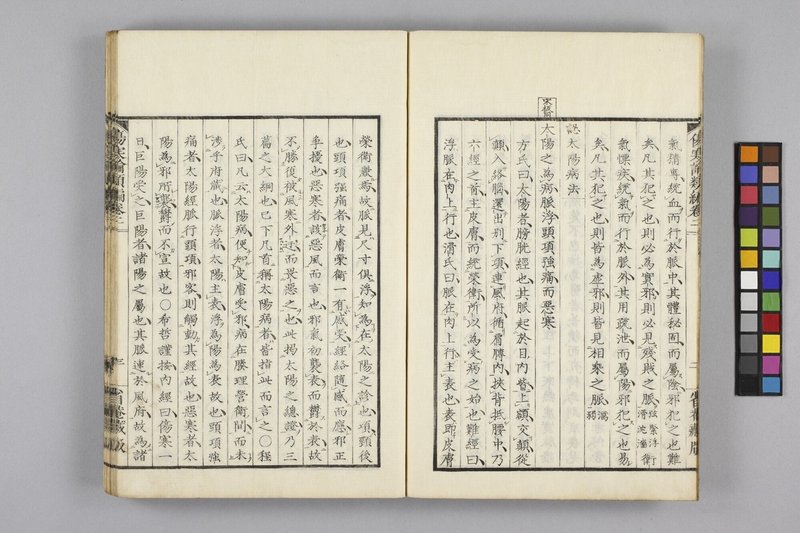 氣猶專統血而行於脈中其體秘固而屬陰邪犯之也難
矣凡其犯之也則必爲實邪則必見殘賊之脈弦緊浮滑沈濇衛
氣慓疾統氣而行於脈外其用疏泄而屬陽邪犯之也易
矣凡其犯之也則皆爲虛邪則皆見相乘之脈
太陽病法
太陽之爲病脈浮頭項強痛而惡寒
方氏曰太陽者膀胱經也其脈起於目內眥上額交顚從
顚入絡腦還出別下項連風府循肩膊內挾脊抵腰中乃
六經之首主皮膚而統榮衛所以爲受病之始也難經曰
浮脈在肉上行也滑氏曰脈在肉上行主表也表即皮膚
榮衛麗焉故脈見尺寸俱浮知爲在太陽之診也項頸後
也頭項強痛者皮膚榮衛一有感受經絡隨感而應邪正
爭擾也惡寒者該惡風而言也邪氣初襲表而鬱於表故
不勝復被風寒外迕而畏惡之也此揭太陽之總證乃三
篇之大綱也已下凡首稱太陽病者皆指此而言之〇程
氏曰凡云太陽病便知皮膚受邪病在腠理營衛間而未
涉乎府藏也脈浮者太陽主表浮爲陽爲表故也頭項強
痛者太陽經脈行頭項邪客則觸動其經故也惡寒者太
陽爲邪所襲鬱而不宣故也〇希哲謹按內經曰傷寒一
日巨陽受之巨陽者諸陽之屬也其脈連於風府故爲諸
傷寒論類編卷二
三